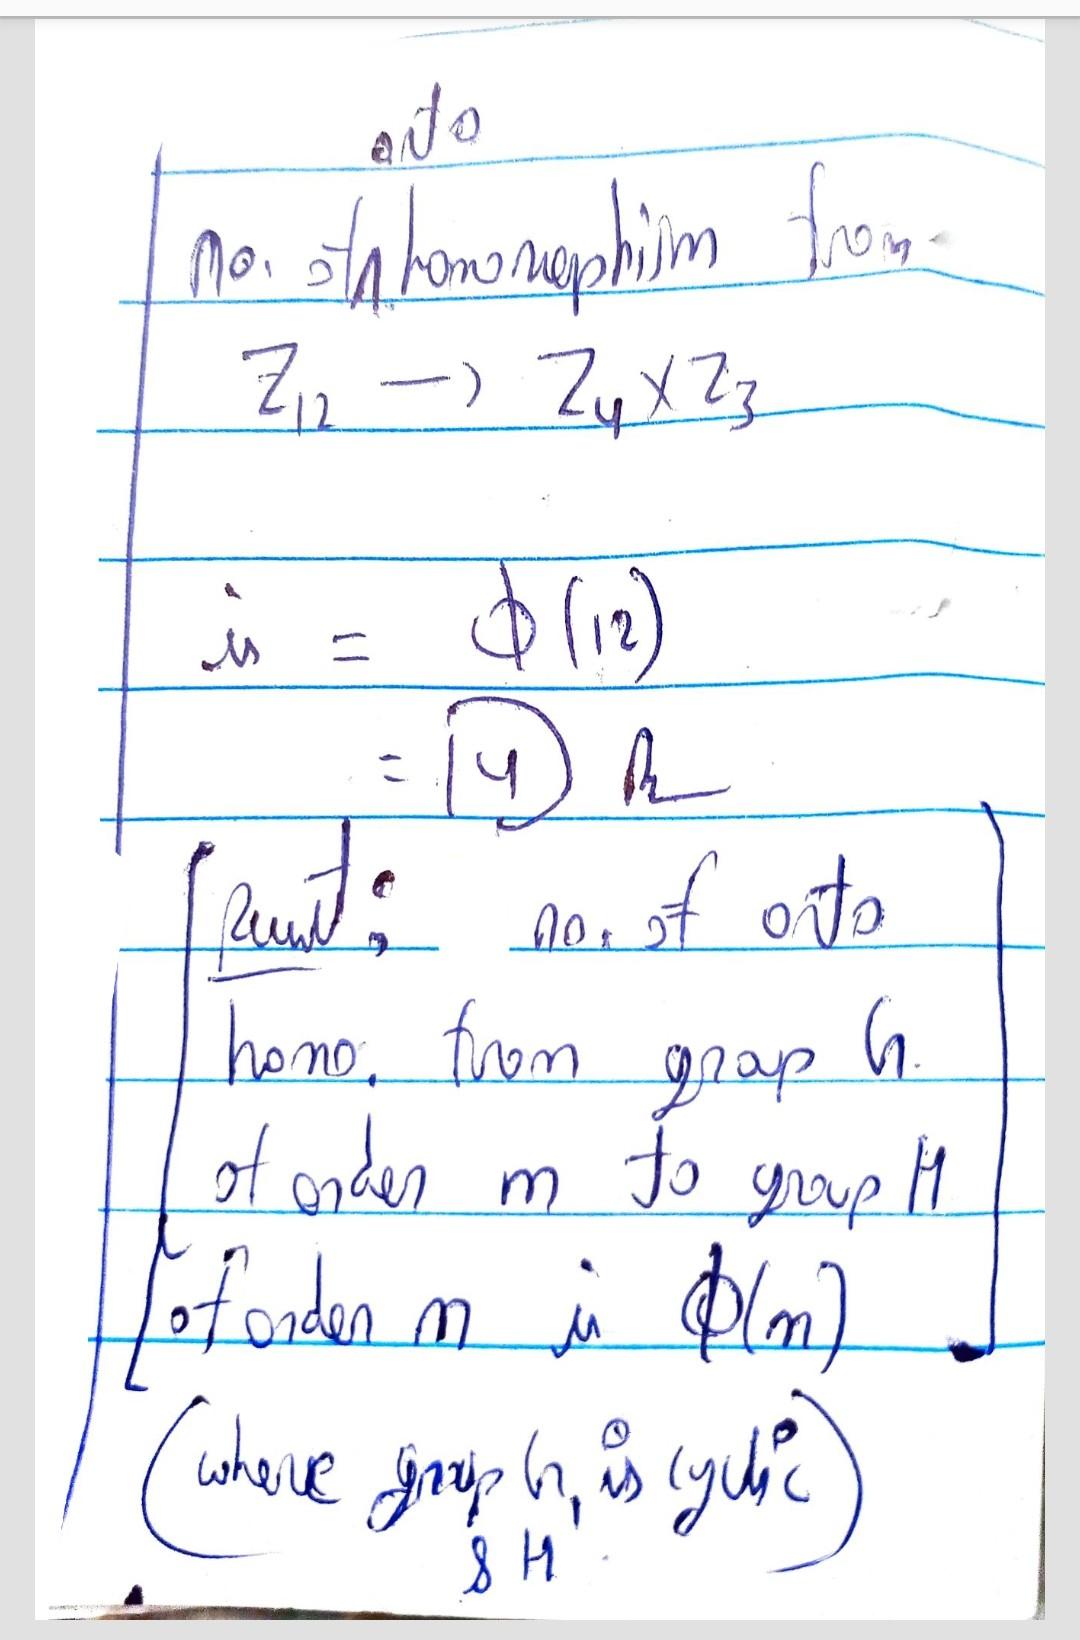 onto
no. of homomorphism from
Z12 -> Z4 X Z3
is = ϕ(12)
= 4
Result: no. of onto
homo. from group G
of order m to group H
of order n is ϕ(n)
(where group G, is cyclic)
& H